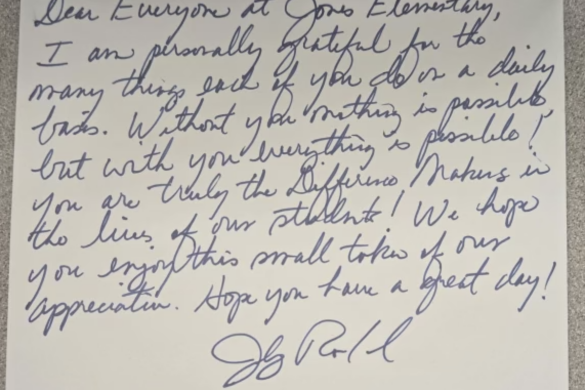 Dear Everyone at Jones Elementary,
I am personally grateful for the
many things each of you do on a daily
basis. Without you nothing is possible,
but with you everything is possible!
you are truly the Difference Makers in
the lives of our students! We hope
you enjoy this small token of our
appreciation. Hope you have a great day!